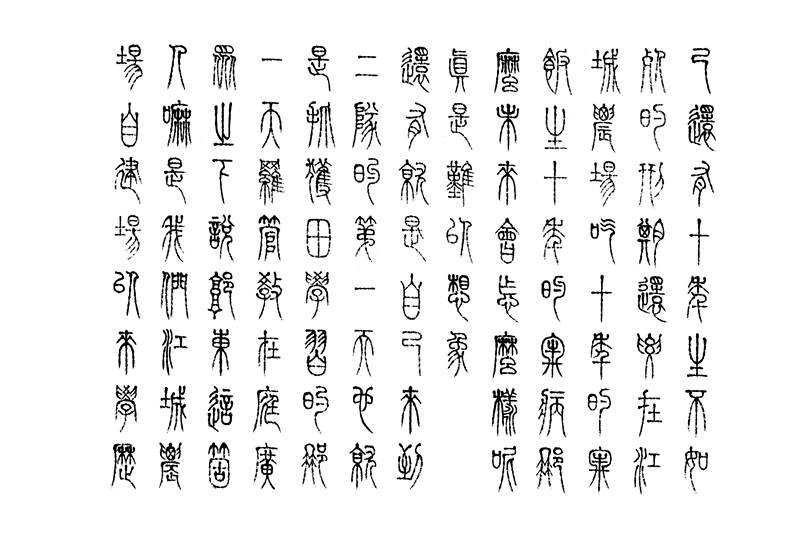 己還有十年生不如
死的刑期還要在江
城農場吃十年的牢
飯坐十年的牢病那
麼未來會怎麼樣呢
真是難以想象
還有就是自己來到
二隊的第一天也就
是抓獲田學習的那
一天羅管教在庭廣
眾之下說郭東這箇
人嘛是我們江城農
場自建場以來學歷